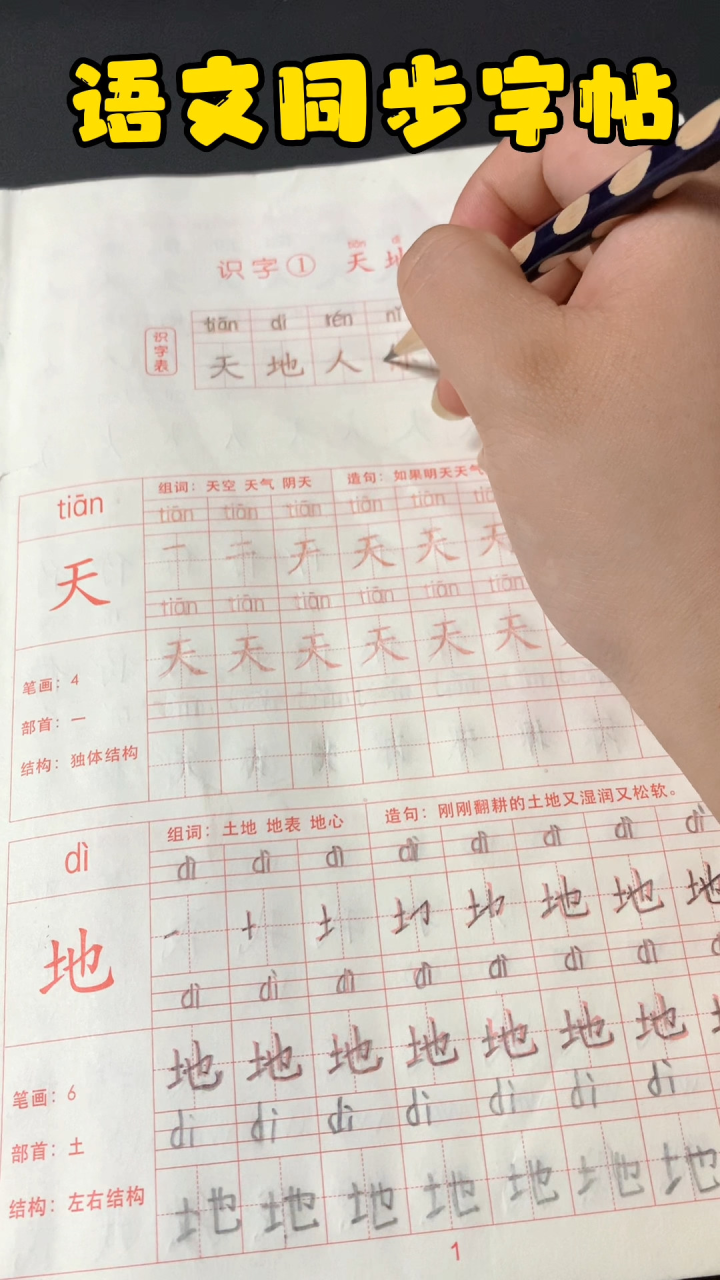 语文同步字帖
识字① 天地
识字表
tiān dì rén nǐ
天 地 人
tiān
组词：天空 天气 阴天
造句：如果明天天气
tiān tiān tiān tiān tiān
天
一 二 天 天 天 天
tiān tiān tiān tiān tiān tiān
天 天 天 天 天 天
笔画：4
部首：一
结构：独体结构
dì
组词：土地 地表 地心
造句：刚刚翻耕的土地又湿润又松软。
dì dì dì dì dì dì dì dì
地
地 地 地
dì dì dì dì dì dì dì
地 地 地 地 地 地 地
笔画：6
dì dì dì dì dì dì dì
部首：土
结构：左右结构
地 地 地 地 地 地 地
1